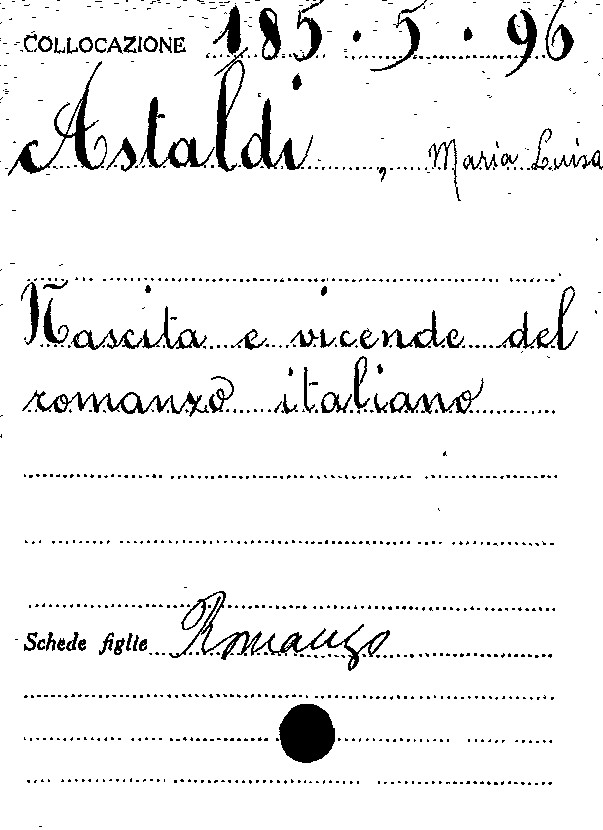 COLLOCAZIONE 185.5.96
Astaldi, Maria Luisa
Nascita e vicende del
romanzo italiano
Schede figlie Romanzo